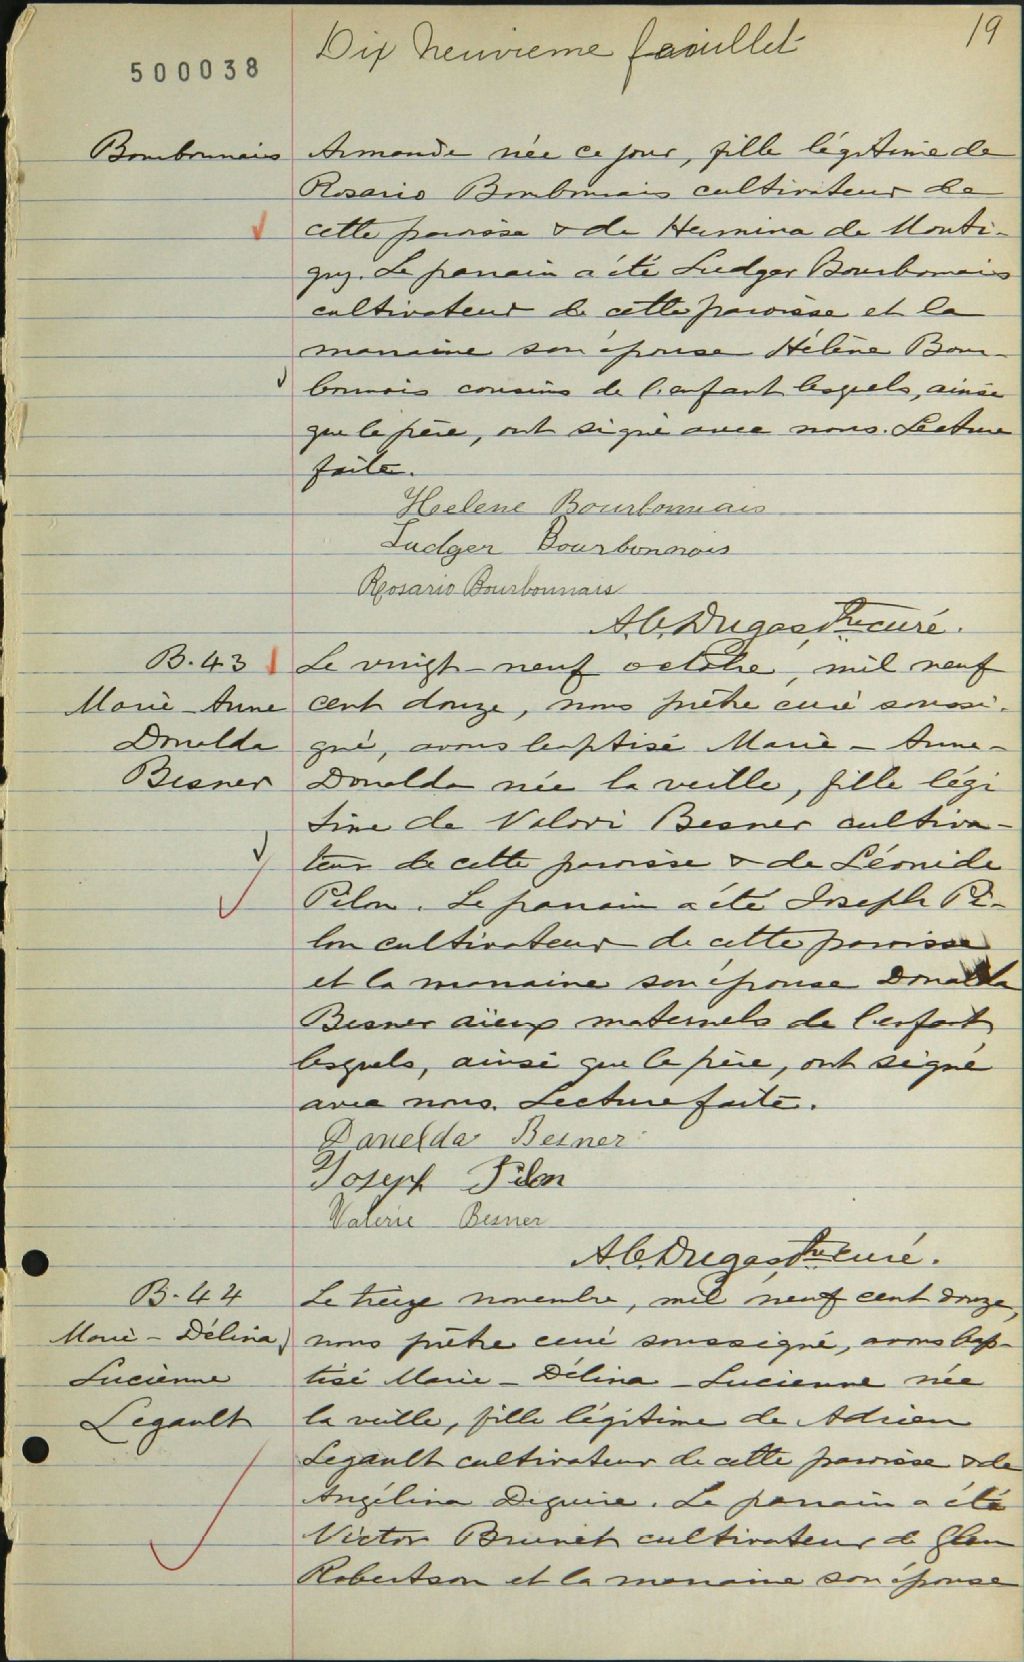 Dix Neuvieme feuillet
19
500038
Bourbonnais
Armande née ce jour, fille légitime de
Rosario Bourbonnais cultivateur de
cette paroisse & de Hermina de Monti-
gny. Le parrain a été Ludger Bourbonnais
cultivateur de cette paroisse et la
marraine son épouse Hélène Bour-
bonnais cousins de l'enfant lesquels, ainsi
que le père, ont signé avec nous. Lecture
faite.
Helene Bourbonnais
Ludger Bourbonnais
Rosario Bourbonnais
A.C. Dugas Ptre curé.
B. 43
Marie-Anne
Donalda
Besner
Le vingt-neuf octobre, mil neuf
cent douze, nous prêtre curé soussi-
gné, avons baptisé Marie-Anne-
Donalda née la veille, fille légi
time de Valori Besner cultiva-
teur de cette paroisse & de Léonide
Pilon. Le parrain a été Joseph Pi-
lon cultivateur de cette paroisse
et la marraine son épouse Donalda
Besner aïeux maternels de l'enfant,
lesquels, ainsi que le père, ont signé
avec nous. Lecture faite.
Danelda Besner
Joseph Pilon
Valerie Besner
A.C. Dugas Ptre curé.
B. 44
Marie-Délina
Lucienne
Legault
Le treize novembre, mil neuf cent douze,
nous prêtre curé soussigné, avons bap-
tisé Marie-Délina-Lucienne née
la veille, fille légitime de Adrien
Legault cultivateur de cette paroisse & de
Angélina Deguire. Le parrain a été
Victor Brunet cultivateur de Glen
Robertson et la marraine son épouse